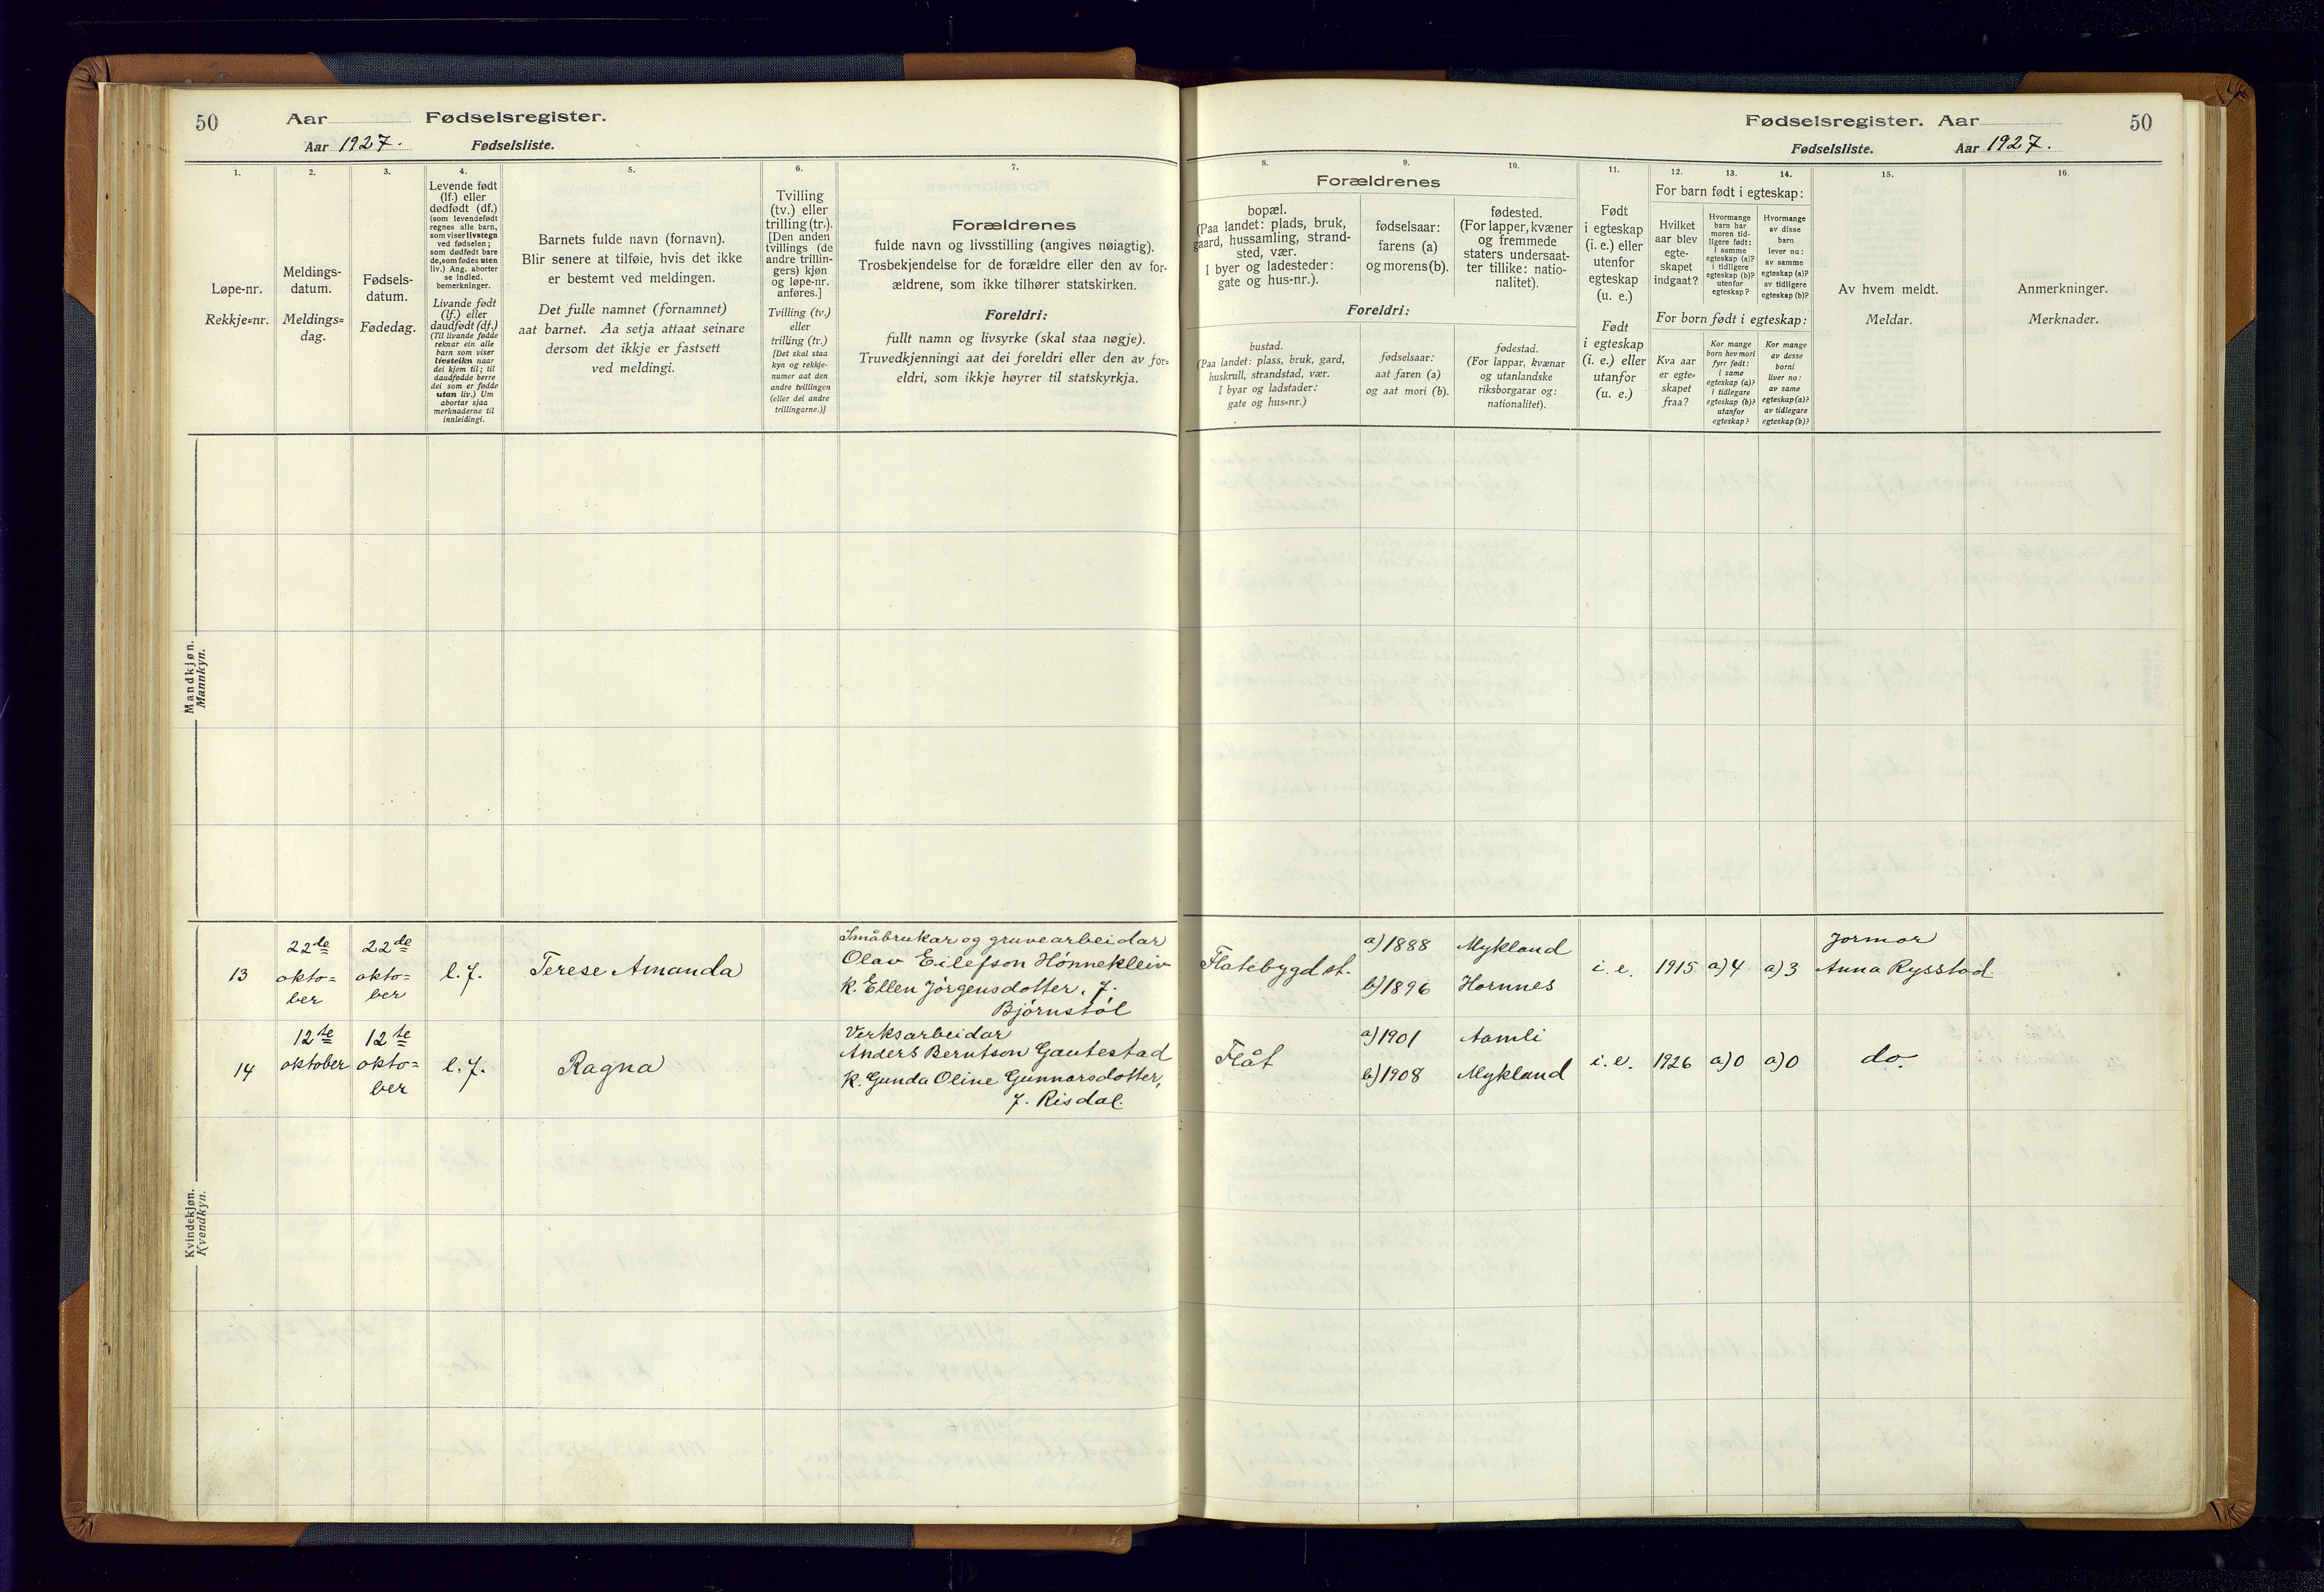 50
Aar
Fødselsregister.
Aar 1927.
Fødselsliste.
1.
2.
3.
4.
5.
6.
7.
Løpe-nr.
Rekkje=nr.
Meldings-
datum.
Meldings=
dag.
Fødsels-
datum.
Fødedag.
Levende født
(lf.) eller
dødfødt (df.)
(som levendefødt
regnes alle barn,
som viser livstegn
ved fødselen;
som dødfødt bare
de, som fødes uten
liv.) Ang. aborter
se indled.
bemerkninger.
Livande født
(lf.) eller
daudfødt (df.)
(Til livande fødde
reknar ein alle
barn som viser
livsteikn naar
dei kjem til; til
daudfødde berre
dei som er fødde
utan liv.) Um
abortar sjaa
merknaderne til
innleidingi.
Barnets fulde navn (fornavn).
Blir senere at tilføie, hvis det ikke
er bestemt ved meldingen.
Det fulle namnet (fornamnet)
aat barnet. Aa setja attaat seinare
dersom det ikkje er fastsett
ved meldingi.
Tvilling
(tv.) eller
trilling (tr.).
[Den anden
tvillings (de
andre trillin-
gers) kjøn
og løpe-nr.
anføres.]
Tvilling (tv.)
eller
trilling (tr.)
[Det skal staa
kyn og rekkje-
numer aat den
andre tvillingen
(eller dei andre
trillingarne.)]
Forældrenes
fulde navn og livsstilling (angives nøiagtig).
Trosbekjendelse for de forældre eller den av for-
ældrene, som ikke tilhører statskirken.
Foreldri:
fullt namn og livsyrke (skal staa nøgje).
Truvedkjenningi aat dei foreldri eller den av for=
eldri, som ikkje høyrer til statskyrkja.
Mandkjøn.
Mannkyn.
13
22de
okto=
ber
22de
okto=
ber
l.f.
Terese Amanda
Småbrukar og gruvearbeidar
Olav Eilefson Hønnekleiv
k. Ellen Jørgensdotter, f.
Bjørnstøl
14
12te
oktober
12te
okto=
ber
l.f.
Ragna
Verksarbeidar
Anders Berntson Gautestad
k. Gunda Oline Gunnarsdotter,
f. Risdal.
Kvindekjøn.
Kvendkyn.
Fødselsregister. Aar
50
Fødselsliste.
Aar 1927.
8.
9.
10.
11.
12.
13.
14.
15.
16.
Forældrenes
bopæl.
(Paa landet: plads, bruk,
gaard, hussamling, strand-
sted, vær.
I byer og ladesteder:
gate og hus-nr.).
fødselsaar:
farens (a)
og morens (b).
fødested.
(For lapper, kvæner
og fremmede
staters undersaat-
ter tillike: natio-
nalitet).
Foreldri:
bustad.
(Paa landet: plass, bruk, gard,
huskrull, strandstad, vær.
I byar og ladstader:
gate og hus=nr.)
fødselsaar:
aat faren (a)
og aat mori (b).
fødestad.
(For lappar, kvænar
og utanlandske
riksborgarar og:
nationalitet).
Født
i egteskap
(i. e.) eller
utenfor
egteskap
(u. e.)
Født
i egteskap
(i. e.) eller
utanfor
(u. e.)
For barn født i egteskap:
Hvilket
aar blev
egte-
skapet
indgaat?
Hvormange
barn har
moren tid-
ligere født:
i samme
egteskap (a)?
i tidligere
egteskap (b)?
utenfor
egteskap?
Hvormange
av disse
barn
lever nu:
av samme
egteskap (a)?
av tidligere
egteskap (b)?
For born født i egteskap:
Kva aar
er egte=
skapet
fraa?
Kor mange
born hev mori
fyrr født:
i same
egteskap (a)?
i tidlegare
egteskap (b)?
utanfor
egteskap?
Kor mange
av desse
borni
liver no:
av same
egteskap (a)?
av tidlegare
egteskap (b)?
Av hvem meldt.
Meldar.
Anmerkninger.
Merknader.
Flatebygd st.
a) 1888
b) 1896
Mykland
Hornnes
i. e.
1915
a) 4
a) 3
Jormor
Anna Rysstad.
Flåt
a) 1901
b) 1908
Aamli
Mykland
i. e.
1926
a) 0
a) 0
do.